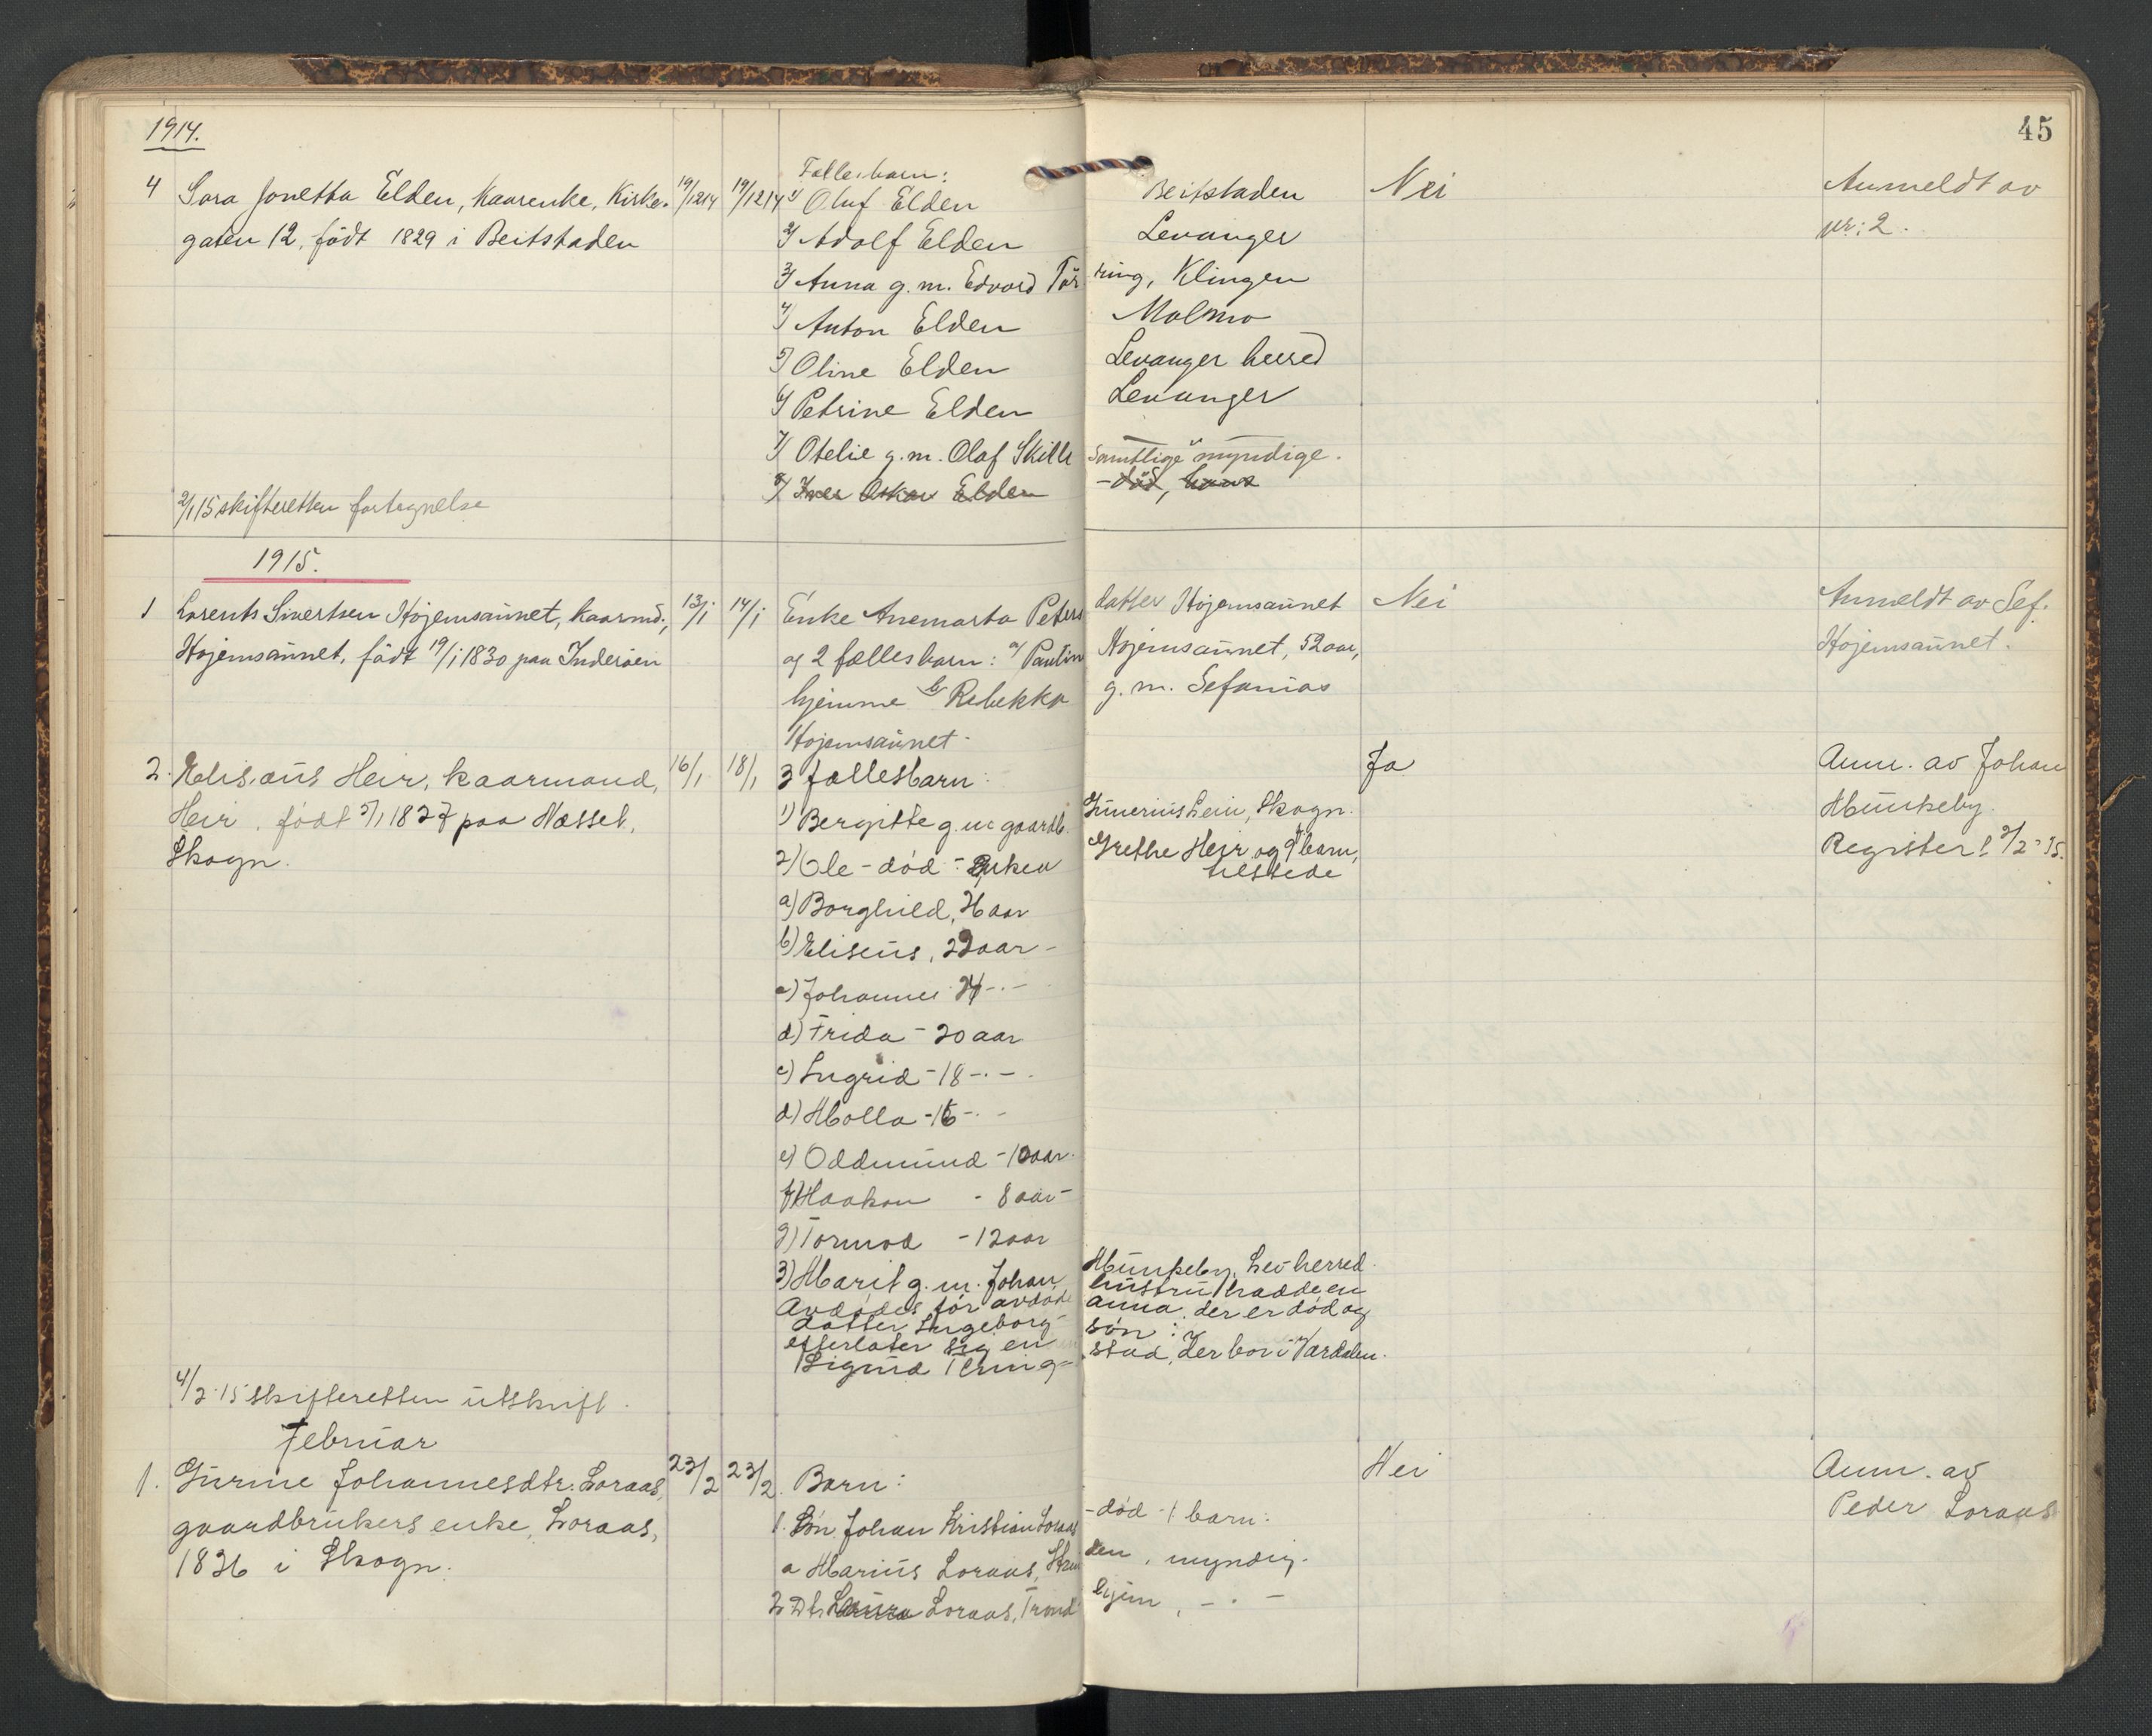 1914.
45
4 Sara Jonetta Elden, Kaarenke, Kirke- 19/12 14 19/12 14 Fællesbarn:
1) Oluf Elden Beitstaden Nei Anmeldt av
gaten 12, født 1829 i Beitstaden 2) Adolf Elden Levanger nr: 2.
3) Anna g.m. Edvard Tørring, Klingen
4) Anton Elden Malmo
5) Oline Elden Levanger herred
6) Petrine Elden Levanger
7) Otelie g.m. Olaf Skille Samtlige myndige.
8) Iver Oskar Elden - død,
2/1 15 skifteretten fortegnelse
1915.
1 Lorents Sivertsen Højemsaunet, kaarmd., 13/1 14/1 Enke Anemarta Petersdatter Højemsaunet Nei Anmeldt av Sef.
Højemsaunet, født 19/1 1830 paa Inderøen og 2 fællesbarn: a) Paulin Højemsaunet, 52 aar, Højemsaunet.
hjemme b) Rebekka g.m. Sefanias
Højemsaunet.
2. Heir, kaarmand, 16/1 18/1 3 fællesbarn: Ja Anm. av Johan
Heir, født 5/1 1827 paa Næsset, 1) Bergitte g.m. gaardb. Lein, Skogn. Munkeby.
Skogn. 2) Ole - død - Enken Grethe Heir og 9 barn, Register. 2/2-15.
tilstede
a) Borghild, 26 aar
b) Eliseus, 22 aar -
c) Johannes 24 -.-
d) Frida - 20 aar
c) Ingrid - 18 -.-
d) Molla - 16 -.-
e) Oddmund - 10 aar.
f) Haakon - 8 aar -
g) Tormod - 12 aar
3) Marit g.m. Johan Munkeby, Lev. herred.
Avdødes før avdøde hustru hadde en
datter Ingeborg anna, der er død og
efterlater sig en søn:
Sigurd Terningstad, der bor i Værdalen.
4/2-15 skifteretten utskrift.
Februar
1. Gurine Johannesdtr. Loraas, 23/2 23/2. Barn: Nei Anm. av
gaardbrukers enke, Loraas, 1. Søn, Johan Kristian Loraas - død - 1 barn: Peder Loraas
1836 i Skogn. a Marius Loraas, myndig.
2 Dtr. Laura Loraas, Trondhjem, - . -